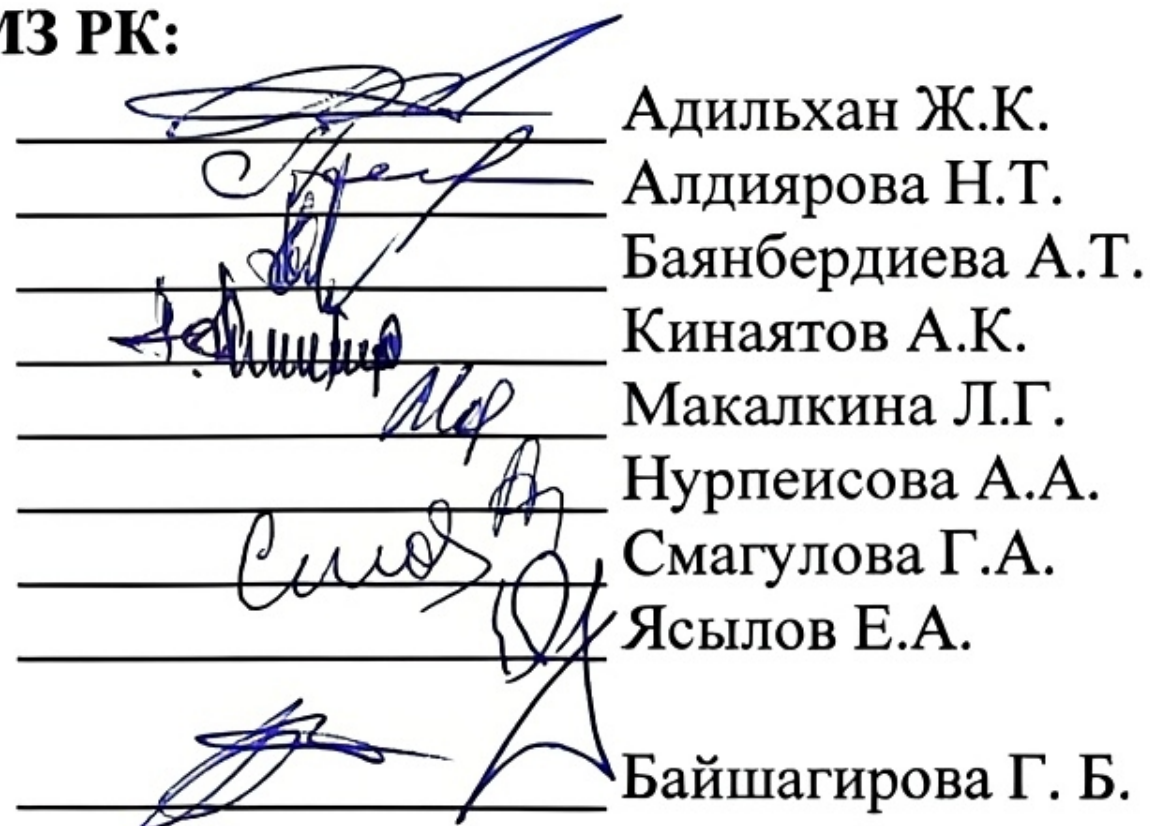 МЗ РК:
Адильхан Ж.К.
Алдиярова Н.Т.
Баянбердиева А.Т.
Кинаятов А.К.
Макалкина Л.Г.
Нурпеисова А.А.
Смагулова Г.А.
Ясылов Е.А.
Байшагирова Г. Б.